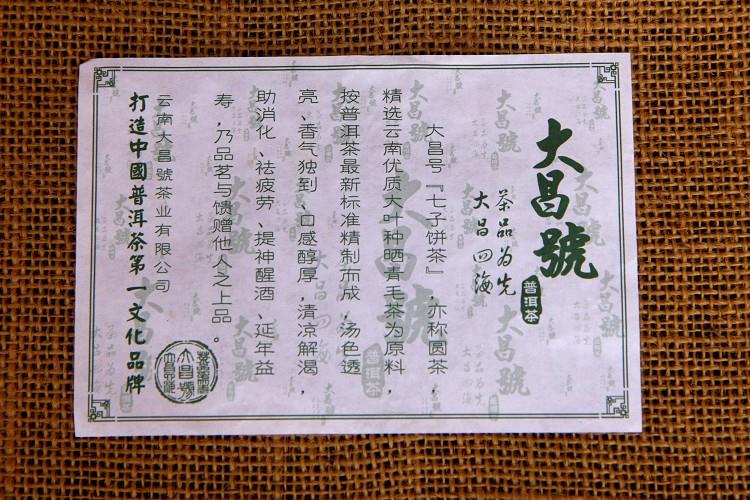 大昌號
普洱茶
茶品为先
大昌四海
大昌号『七子饼茶』，亦称圆茶，
精选云南优质大叶种晒青毛茶为原料，
按普洱茶最新标准精制而成，汤色透
亮、香气独到、口感醇厚，清凉解渴，
助消化、祛疲劳、提神醒酒、延年益
寿，乃品茗与馈赠他人之上品。
云南大昌號茶业有限公司
打造中國普洱茶第一文化品牌